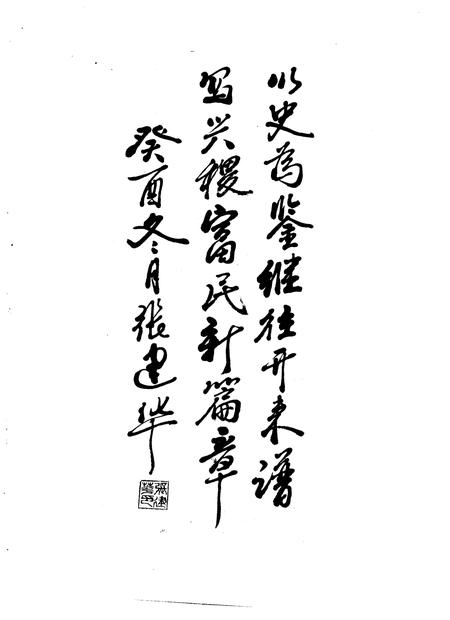 以史为鉴继往开来谱
写兴稷富民新篇章
癸酉冬月张建华